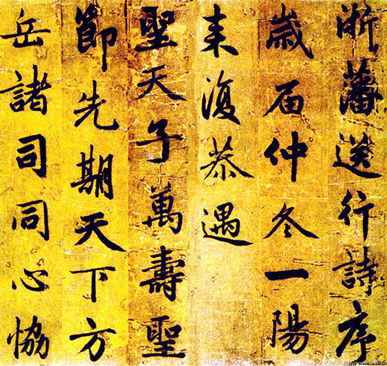 浙藩送行詩序
歲屆仲冬一陽
來復恭遇
聖天子萬壽聖
節先期天下方
岳諸司同心恊